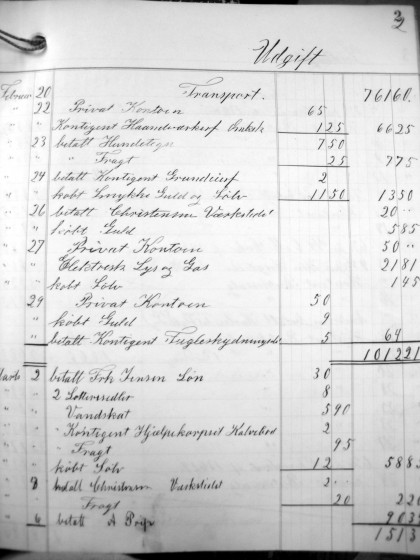 2
Udgift
Februar 20 Transport. 76160.
" 22 Privat Kontoen 65
" " Kontigent Haandværkerf 125 6625
" 23 betalt Hundetegn 750
" " " Fragt 25 775
" 24 betalt Kontigent Grundeierf 2
" " kobt Smykke Guld og Sölv 1150 1350
" 26 betalt Christensen Værkstedet 20 "
" " kobt Guld 585
" 27 Privat Kontoen 50 "
" " Elektrisk Lys og Gas 2181
" " kobt Sölv 145
" 29 Privat Kontoen 50
" " kobt Guld 9
" " betalt Kontigent Fugleskydningss 5 64
101221
Marts 2 betalt Frk Jensen Løn 30
" " 2 Lotterisedler 8
" " Vandskat 590
" " Kontigent Hjælpekorpset 2
" " Fragt 95
" " kobt Sölv 12 588
" 8 betalt Christensen Værkstedet 2 "
" " Fragt 20 220
" 6 betalt A 9039
1513